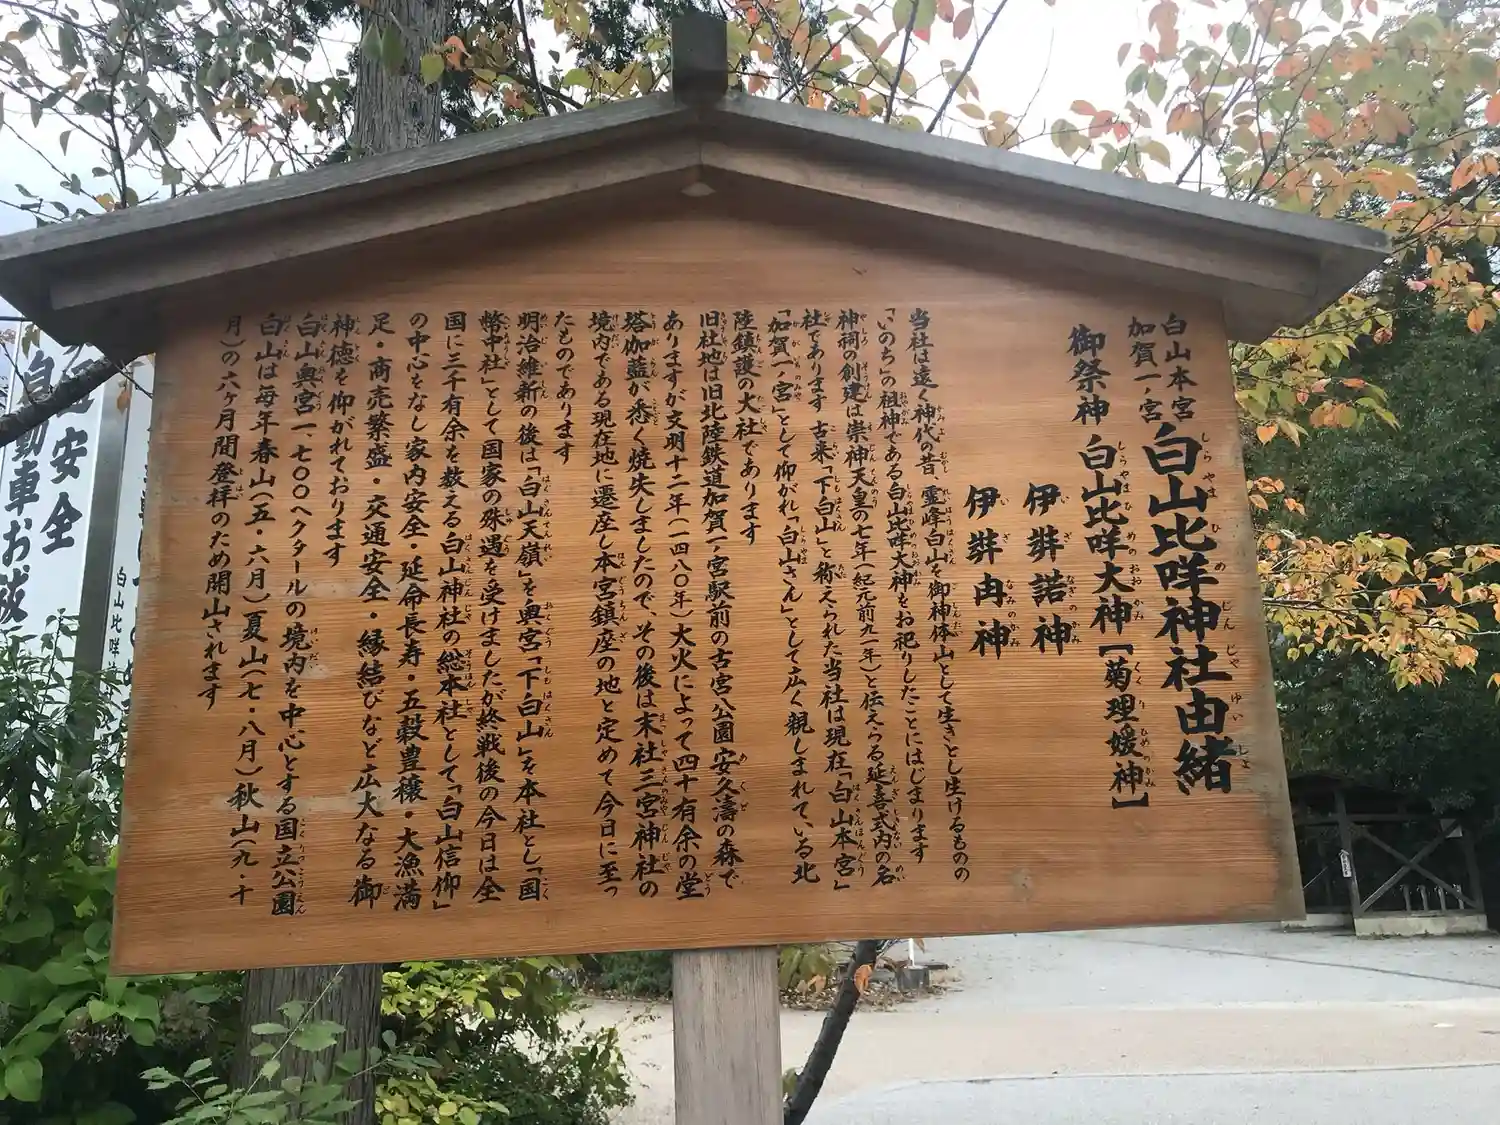 白山本宮
加賀一ノ宮
白山比咩神社由緒
御祭神 白山比咩大神[菊理媛神]
伊弉諾神
伊弉冉神
当社は遠く神代の昔、霊峰白山を御神体山として生きとし生けるものの
「いのち」の祖神である白山比咩大神をお祀りしたことにはじまります
神祠の創建は崇神天皇の七年(紀元前九一年)と伝えらる延喜式内の名
社であります 古来「下白山」と称えられた当社は現在「白山本宮」
「加賀一ノ宮」として仰がれ「白山さん」として広く親しまれて、いる北
陸鎮護の大社であります
旧社地は旧北陸鉄道加賀一ノ宮駅前の古宮公園安久濤の森で
ありますが文明十二年(一四八〇年)大火によって四十有余の堂
塔伽藍が悉く焼失しましたので、その後は末社三宮神社の
境内である現在地に遷座し本宮鎮座の地と定めて今日に至っ
たものであります
明治維新の後は「白山天嶺」を奥宮「下白山」を本社とし「国
幣中社」として国家の殊遇を受けましたが終戦後の今日は全
国に三千有余を数える白山神社の総本社として「白山信仰」
の中心をなし家内安全・延命長寿・五穀豊穣・大漁満
足・商売繁盛・交通安全・縁結びなど広大なる御
神徳を仰がれております
白山奥宮一、七〇〇ヘクタールの境内を中心とする国立公園
白山は毎年春山(五・六月)夏山(七・八月)秋山(九・十
月)の六ヶ月間登拝のため開山されます
安全
自動車お祓
白山比咩神